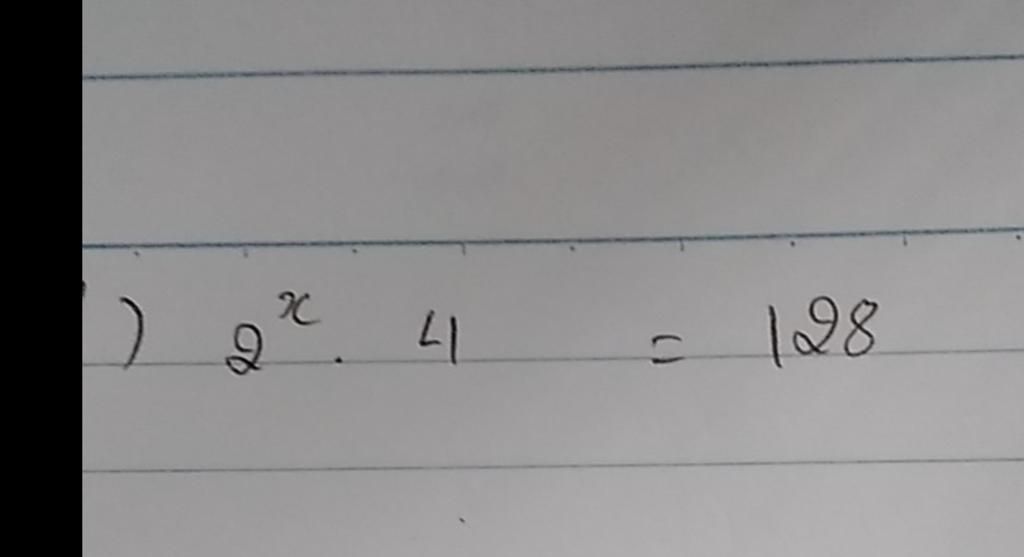 ) 2ˣ . 4 = 128